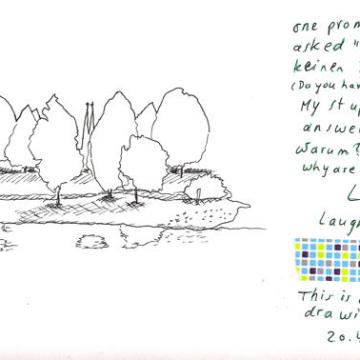 one prom
asked "
keinen
(Do you hav
My stup
answe
Warum?
why are
L
Laug
This is
drawi
20.